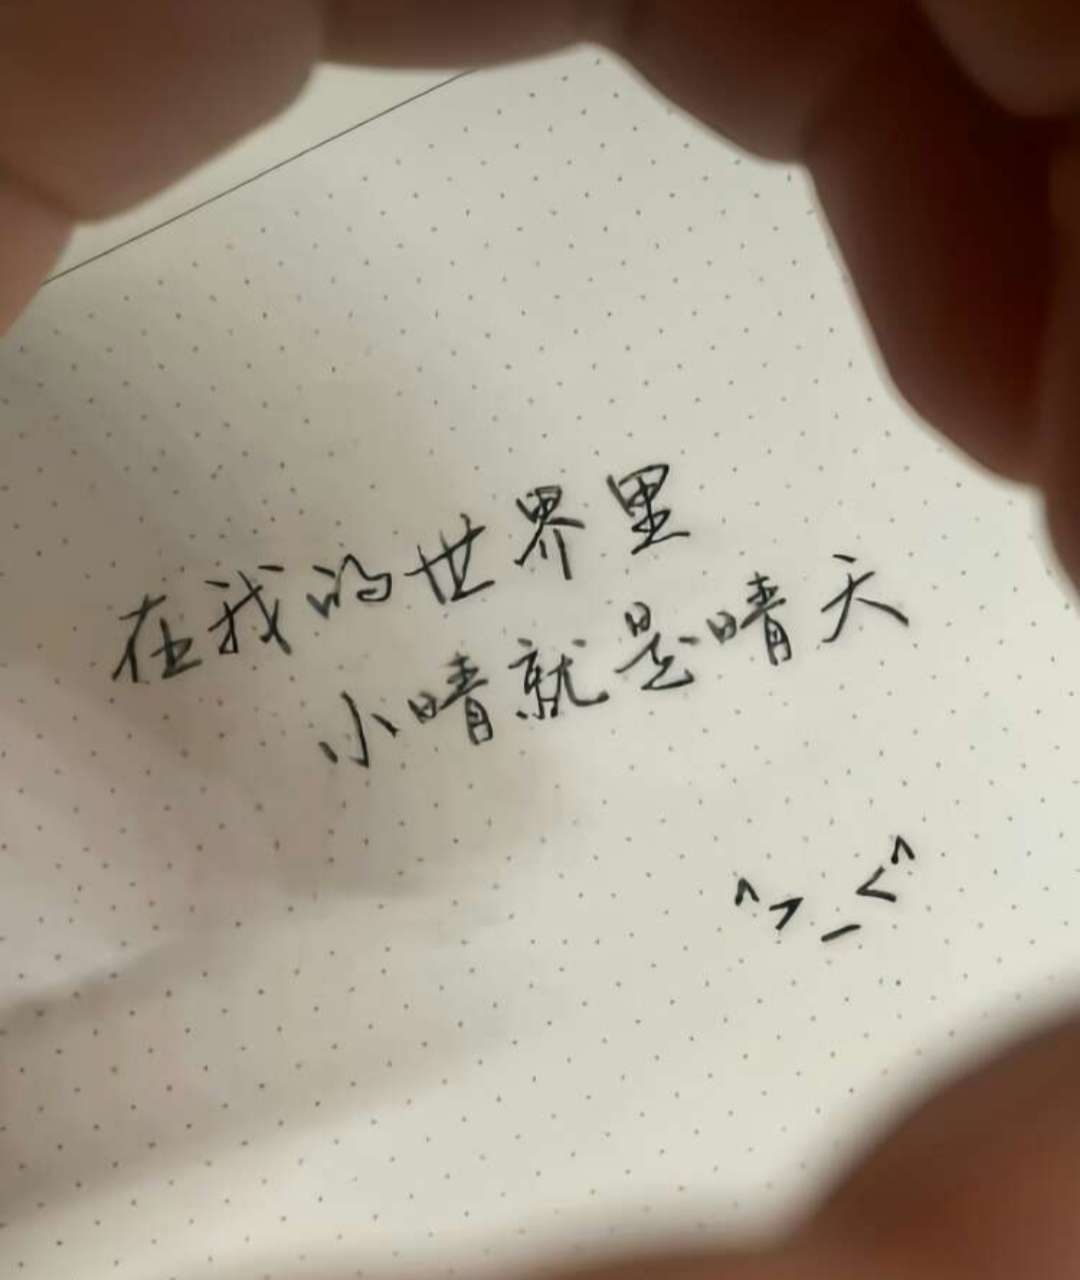 在我的世界里
小晴就是晴天
^>_<^